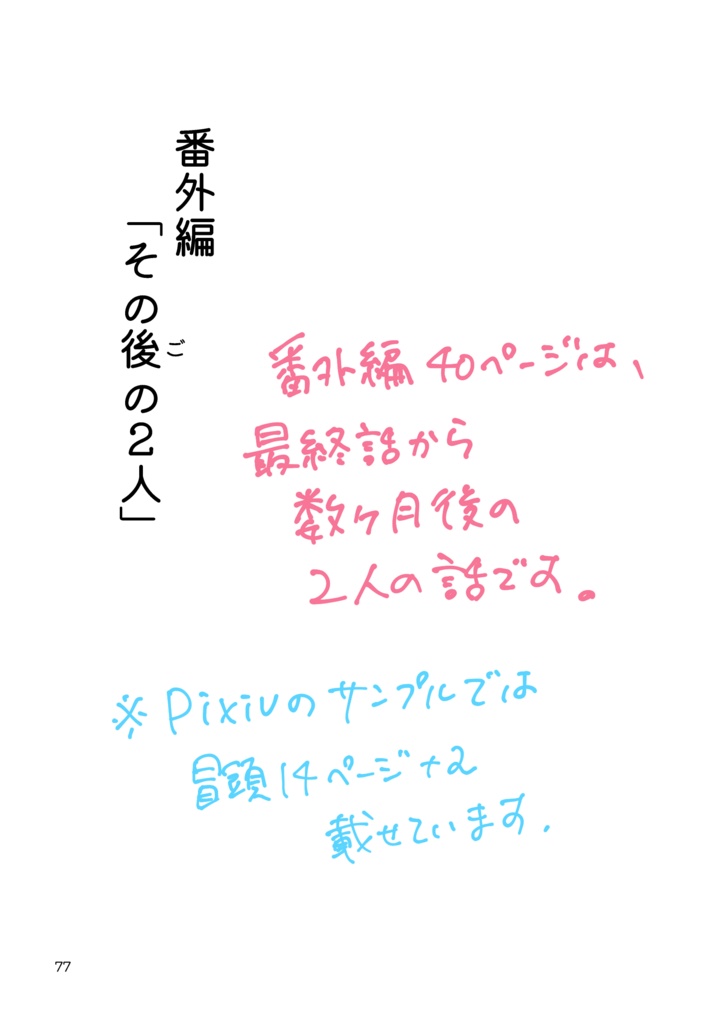 番外編
「その後の2人」
ご
番外編40ページは、
最終話から
数ヶ月後の
2人の話です。
※Pixivのサンプルでは
冒頭14ページ+α
載せています.
77